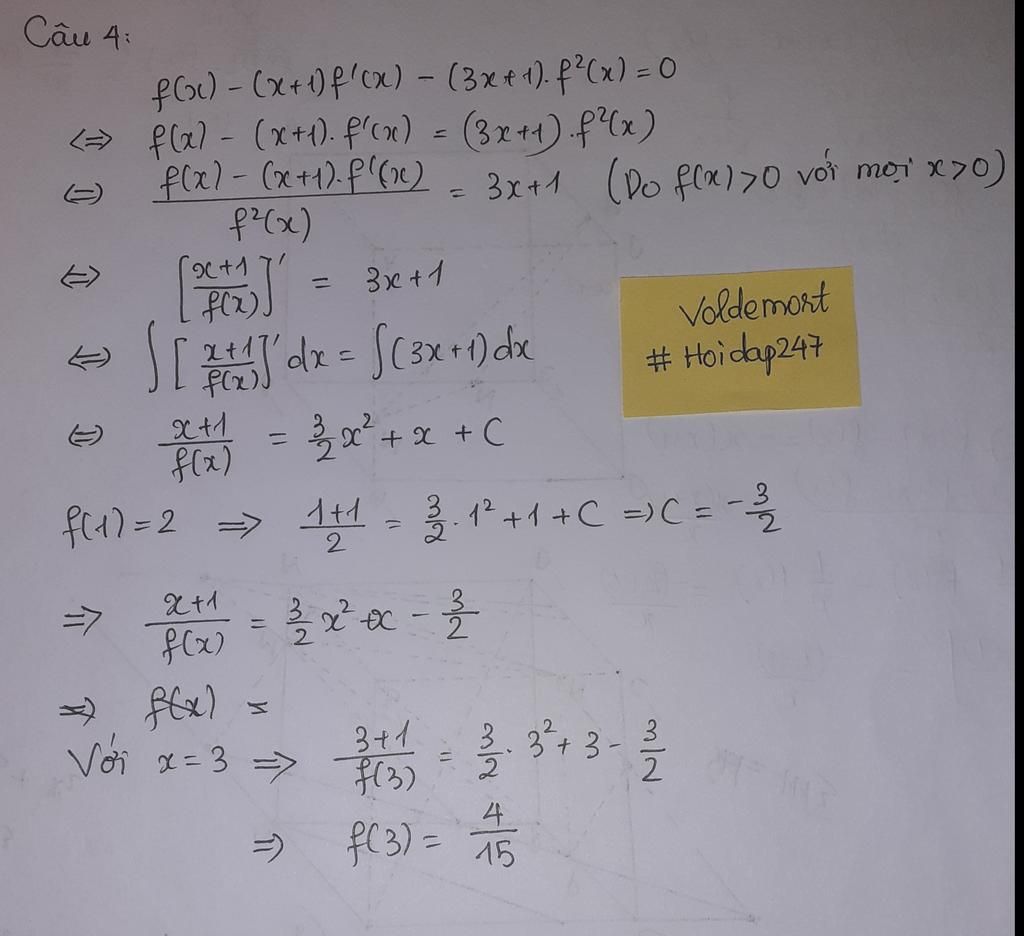 Câu 4:
f(x) - (x+1)f'(x) - (3x+1).f²(x) = 0
⇔ f(x) - (x+1).f'(x) = (3x+1).f²(x)
⇔ \frac{f(x) - (x+1).f'(x)}{f²(x)} = 3x+1 (Do f(x)>0 với mọi x>0)
⇔ [\frac{x+1}{f(x)}]' = 3x+1
⇔ ∫[\frac{x+1}{f(x)}]'dx = ∫(3x+1)dx
⇔ \frac{x+1}{f(x)} = \frac{3}{2}x² + x + C
Voldemort
# Hoidap247
f(1)=2 ⇒ \frac{1+1}{2} = \frac{3}{2}.1²+1+C ⇒ C = -\frac{3}{2}
⇒ \frac{x+1}{f(x)} = \frac{3}{2}x² + x - \frac{3}{2}
⇒ f(x) =
Với x=3 ⇒ \frac{3+1}{f(3)} = \frac{3}{2}.3²+3-\frac{3}{2}
⇒ f(3) = \frac{4}{15}